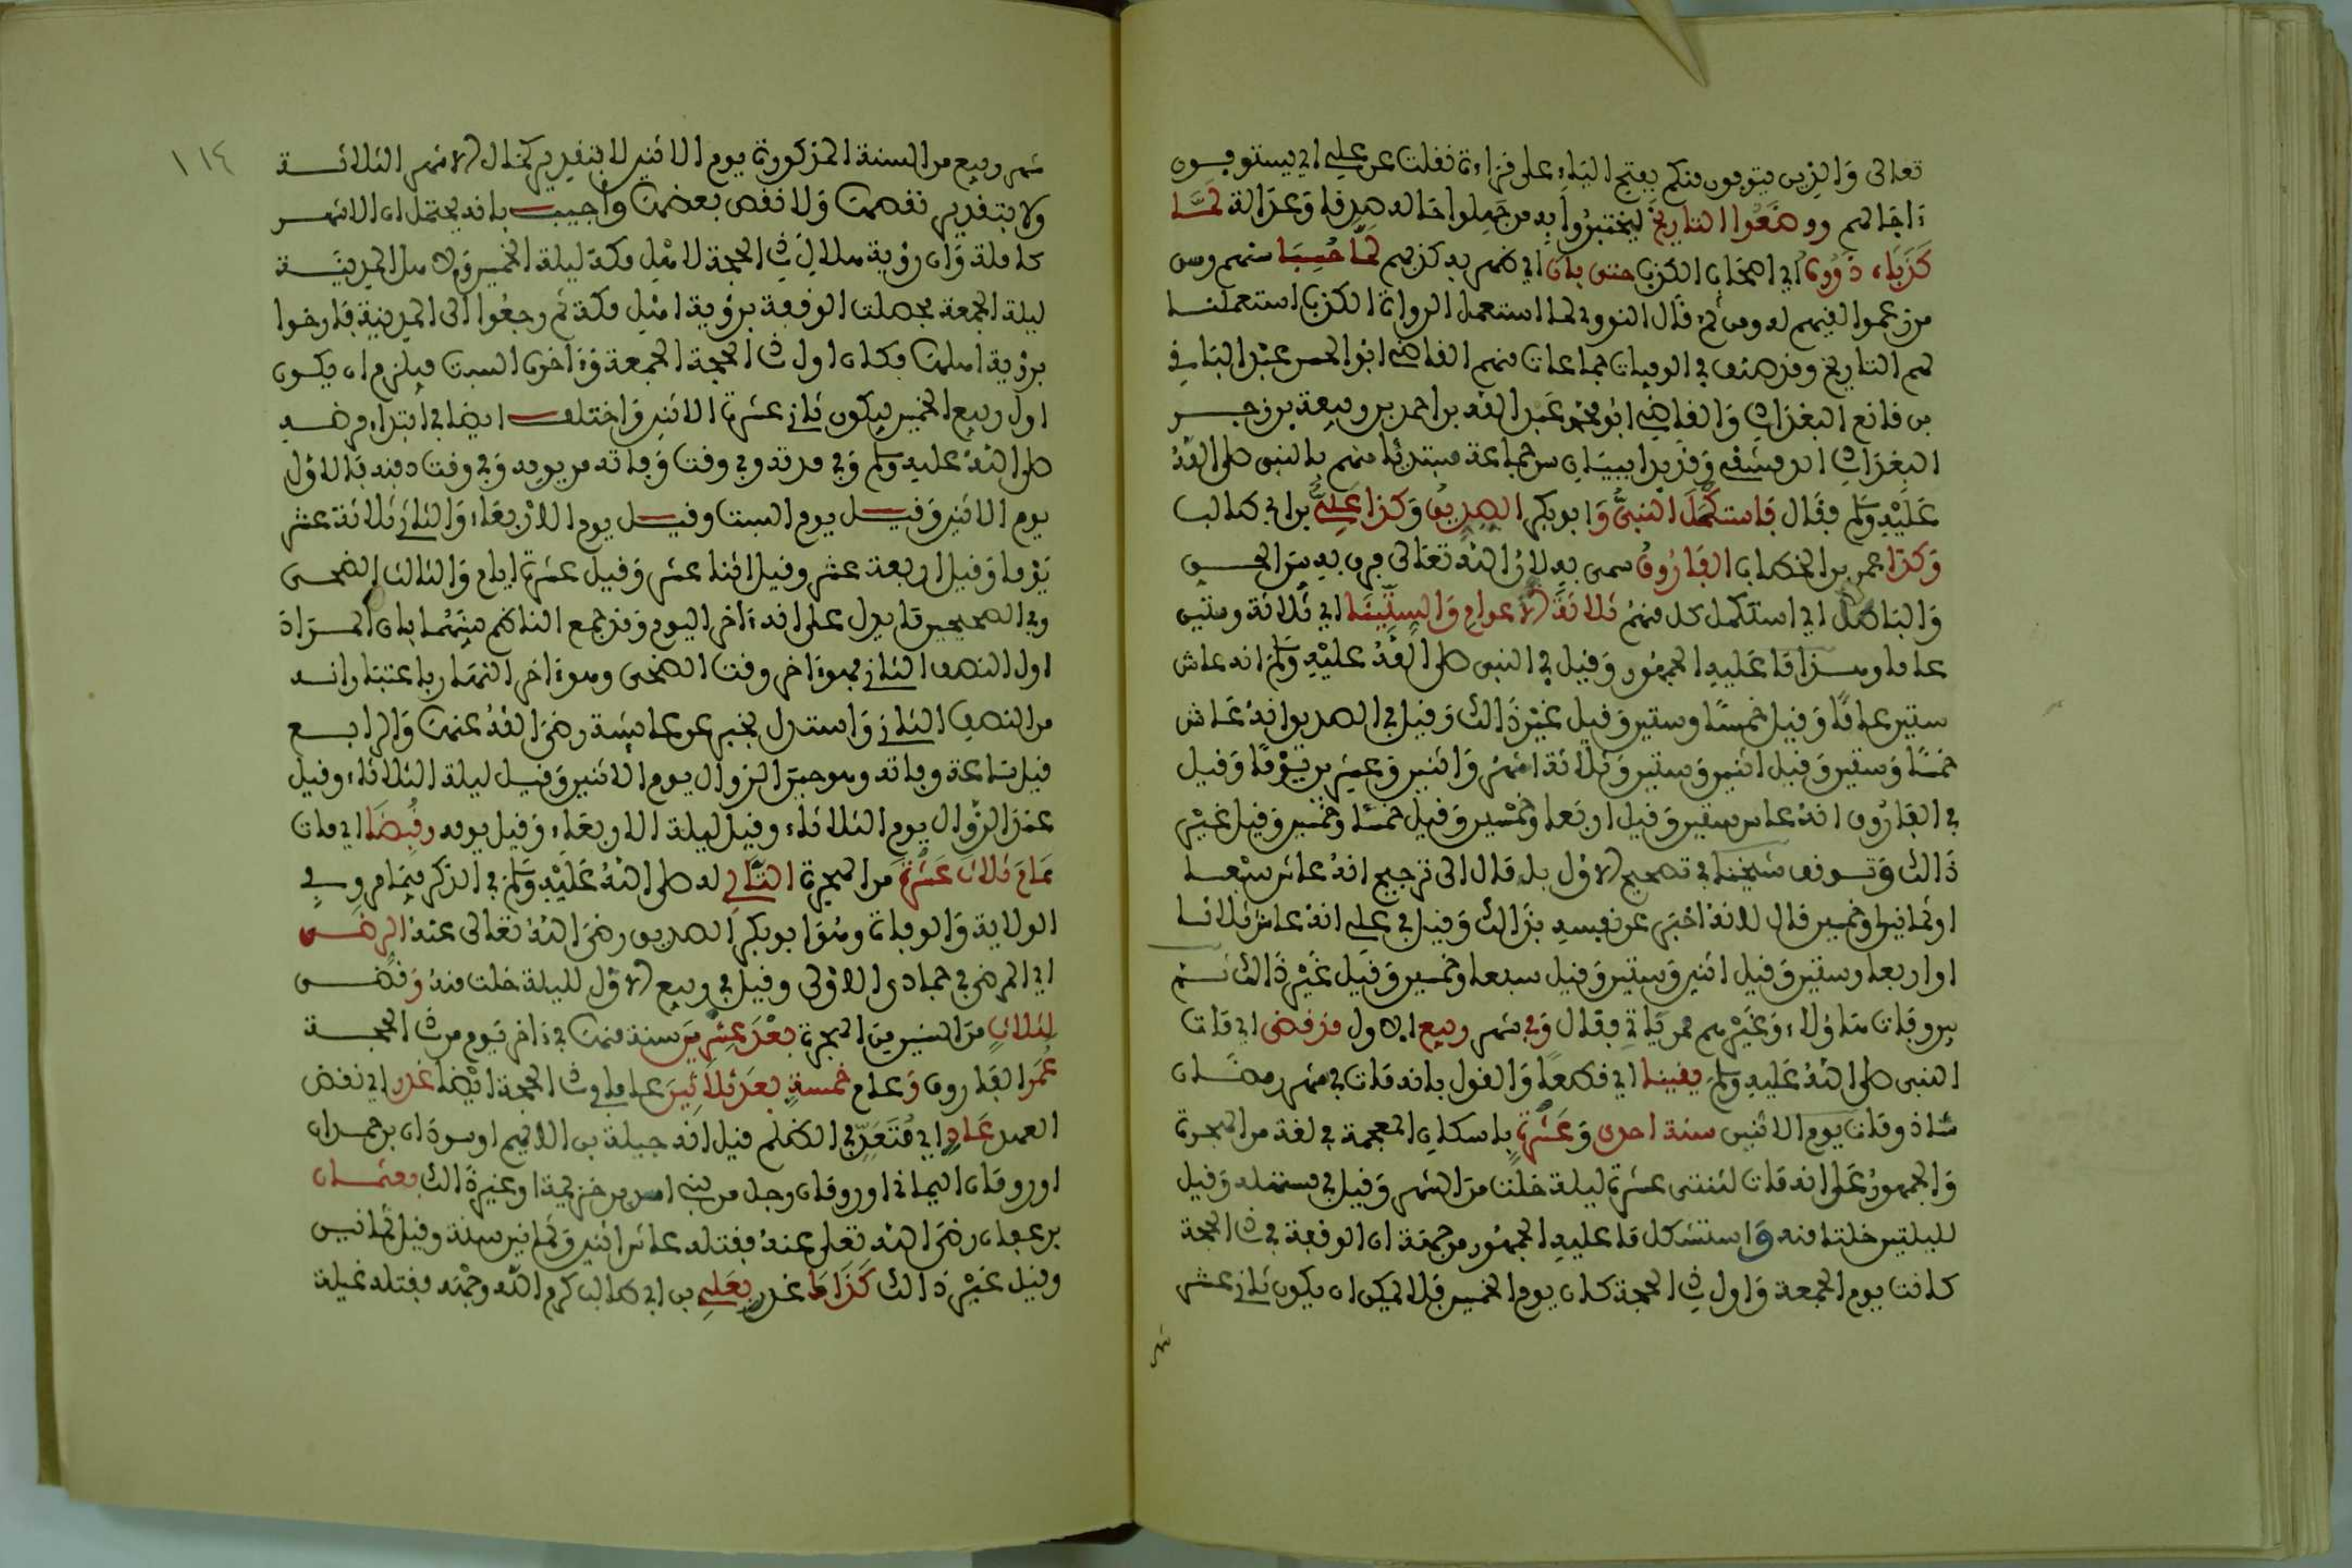 تعالى وَالذين يتوفون منكم بفتح الياء على قراءة نقلت عن علي اي يستوفون
ءاجالهم ووضعوا التاريخ ليختبروا به من جهلوا حاله صدقا وعدالة لما
كذبا، ذووه اي اصحاب الكذب حتى بان اي ظهر به كذبهم لما حسبا سنهم وسن
من زعموا لقيهم له ومن ثم قال النووي لما استعمل الرواة الكذب استعملنا
لهم التاريخ وقد صنف في الوفيات جماعات منهم القاضي ابو الحسن عبد الباقي
بن قانع البغدادي والقاضي ابو محمد عبد الله بن احمد بن ربيعة بن زجر
البغدادي الدمشقي وقد بدا ببيان سن جماعة مبتدئا منهم بالنبي صلى الله
عليه وسلم فقال فاستكمل النبي وابو بكر الصديق وكذا علي بن ابي طالب
وكذا عمر بن الخطاب الفاروق سمي به لان الله تعالى فرق به بين الحق
والباطل اي استكمل كل منهم ثلاثة الاعوام والستينا اي ثلاثة وستين
عاما وهذا ما عليه الجمهور وقيل في النبي صلى الله عليه وسلم انه عاش
ستين عاما وقيل خمسا وستين وقيل غير ذالك وقيل في الصديق انه عاش
خمسا وستين وقيل اثنين وستين وثلاثة اشهر واثنين وعشرين يوما وقيل
في الفاروق انه عاش ستين وقيل اربعا وخمسين وقيل خمسا وخمسين وقيل غير
ذالك وتوقف شيخنا في تصحيح الاول بل مال الى ترجيح انه عاش سبعا
او ثمانيا وخمسين قال لانه اخبر عن نفسه بذالك وقيل في علي انه عاش ثلاثا
او اربعا وستين وقيل اثنين وستين وقيل سبعا وخمسين وقيل غير ذالك ثم
بين وفات هاؤلاء وغيرهم ممن ياتي فقال وفي شهر ربيع الاول قد قضى اي مات
النبي صلى الله عليه وسلم يقينا اي قطعا والقول بانه مات في شهر رمضان
شاذ ومات يوم الاثنين سنة احدى وعشرة باسكان المعجمة في لغة من الهجرة
والجمهور على انه مات لثنتي عشرة ليلة خلت من الشهر وقيل في مستهله وقيل
لليلتين خلتا منه واستشكل ما عليه الجمهور من جهة ان الوقفة في ذي الحجة
كانت يوم الجمعة واول ذي الحجة كان يوم الخميس فلا يمكن ان يكون ثاني عشر
شهر
١١٤
شهر ربيع من السنة المذكورة يوم الاثنين لا بتقدير كمال الاشهر الثلاثة
ولا بتقدير نقصها ولا نقص بعضها واجيب بانه يحتمل ان الاشهر
كاملة وان رؤية هلال ذي الحجة لاهل مكة ليلة الخميس ولاهل المدينة
ليلة الجمعة فحصلت الوقفة برؤية اهل مكة ثم رجعوا الى المدينة فارخوا
برؤية اهلها فكان اول ذي الحجة الجمعة وءاخره السبت فيلزم ان يكون
اول ربيع الخميس فيكون ثاني عشرة الاثنين واختلف ايضا في ابتداء مرضه
صلى الله عليه وسلم وفي مدته وفي وقت وفاته من يومه وفي وقت دفنه فالاول
يوم الاثنين وقيل يوم السبت وقيل يوم الاربعاء والثاني ثلاثة عشر
يوما وقيل اربعة عشر وقيل اثنا عشر وقيل عشرة ايام والثالث الضحى
وفي الصحيحين ما يدل على انه ءاخر اليوم وقد جمع الناظم بينهما بان المراد
اول النصف الثاني فهو ءاخر وقت الضحى وهو ءاخر النهار باعتبار انه
من النصف الثاني واستدل بخبر عن عايشة رضي الله عنها والرابع
قيل ساعة وفاته وهو حين الزوال يوم الاثنين وقيل ليلة الثلاثاء وقيل
عند الزوال يوم الثلاثاء وقيل ليلة الاربعاء وقيل يومه وقبضا اي مات
عام ثلاث عشرة من الهجرة التالي له صلى الله عليه وسلم في الذكر فيما مر وفي
الولاية والوفاة وهو ابو بكر الصديق رضي الله تعالى عنه الرضى
اي المرضي في جمادى الاولى وقيل في ربيع الاول لليلة خلت منه وقضى
لثلاث من السنين من الهجرة بعد عشرين سنة منها في ءاخر يوم من ذي الحجة
عمر الفاروق وعام خمسة بعد ثلاثين عاما وفي ذي الحجة ايضا غدر اي نقض
العهد عاد اي متعد في الظلم قيل انه جبلة بن الايهم او سودان بن حمران
او رومان اليماني او رومان رجل من بني اسد بن خزيمة او غير ذالك بعثمان
بن عفان رضي الله تعالى عنه فقتله عاش اثنين وثمانين سنة وقيل ثمانين
وقيل غير ذالك كذاما غدر بعلي بن ابي طالب كرم الله وجهه فقتله غيلة